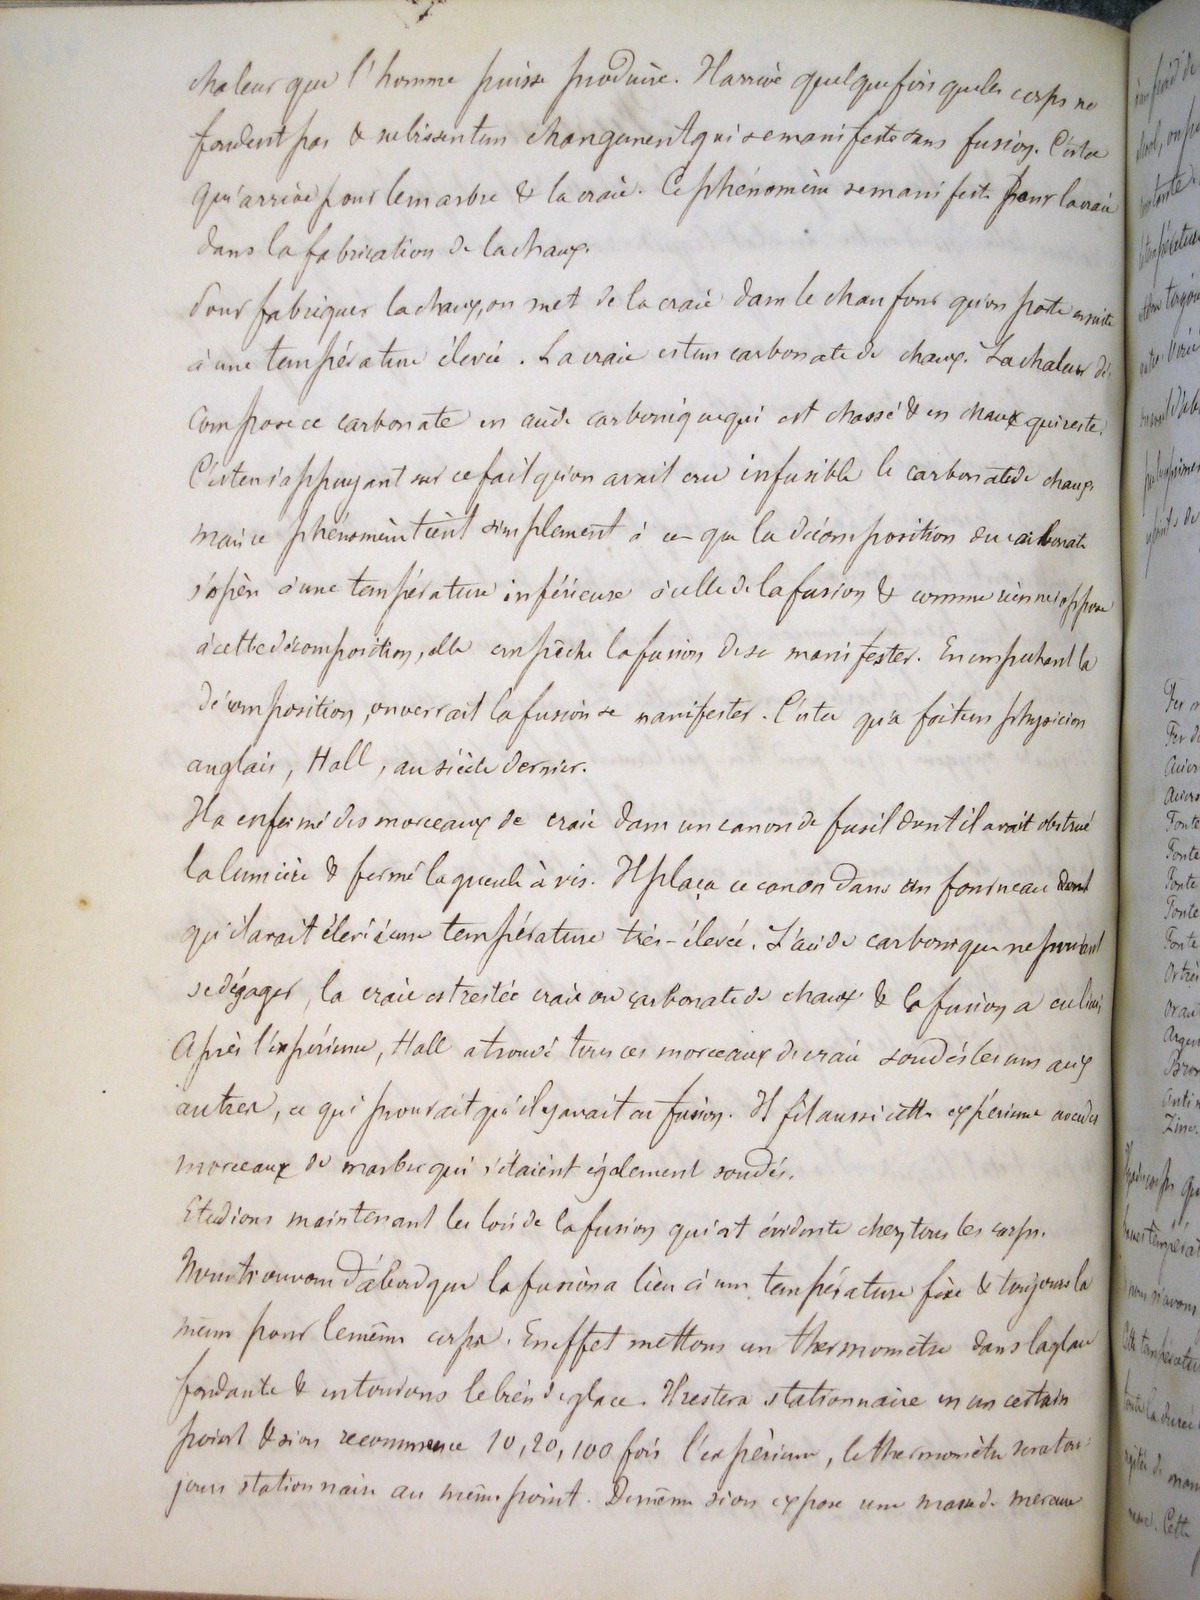 chaleur que l'homme puisse produire. Il arrive quelquefois que les corps ne
fondent pas & subissent un changement qui se manifeste sans fusion. C'est ce
qui arrive pour le marbre & la craie. Ce phénomène se manifeste pour la craie
dans la fabrication de la chaux.
Pour fabriquer la chaux, on met de la craie dans le chaufour qu'on porte ensuite
à une température élevée. La craie est un carbonate de chaux. La chaleur dé-
compose ce carbonate en acide carbonique qui est chassé & en chaux qui reste.
C'est en s'appuyant sur ce fait qu'on avait cru infusible le carbonate de chaux
mais ce phénomène tient simplement à ce que la décomposition du carbonate
s'opère à une température inférieure à celle de la fusion & comme rien ne s'oppose
à cette décomposition, elle empêche la fusion de se manifester. En empêchant la
décomposition, on verrait la fusion se manifester. C'est ce qu'a fait un physicien
anglais, Hall, au siècle dernier.
Il a enfermé des morceaux de craie dans un canon de fusil dont il avait obstrué
la lumière & fermé la gueule à vis. Il plaça ce canon dans un fourneau
qu'il avait élevé à une température très-élevée. L'acide carbonique ne pouvant
se dégager, la craie est restée craie ou carbonate de chaux & la fusion a eu lieu.
Après l'expérience, Hall a trouvé tous ces morceaux de craie soudés les uns aux
autres, ce qui prouvait qu'il y avait eu fusion. Il fit aussi cette expérience avec des
morceaux de marbre qui s'étaient également soudés.
Etudions maintenant les lois de la fusion qui est évidente chez tous les corps.
Nous trouvons d'abord que la fusion a lieu à une température fixe & toujours la
même pour le même corps. En effet mettons un thermomètre dans la glace
fondante & entourons le bien de glace. Il restera stationnaire en un certain
point & si on recommence 10, 20, 100 fois l'expérience, le thermomètre sera tou-
jours stationnaire au même point. De même si on expose une masse de mercure
Fonte
Fonte
Fonte
Fonte
Fonte